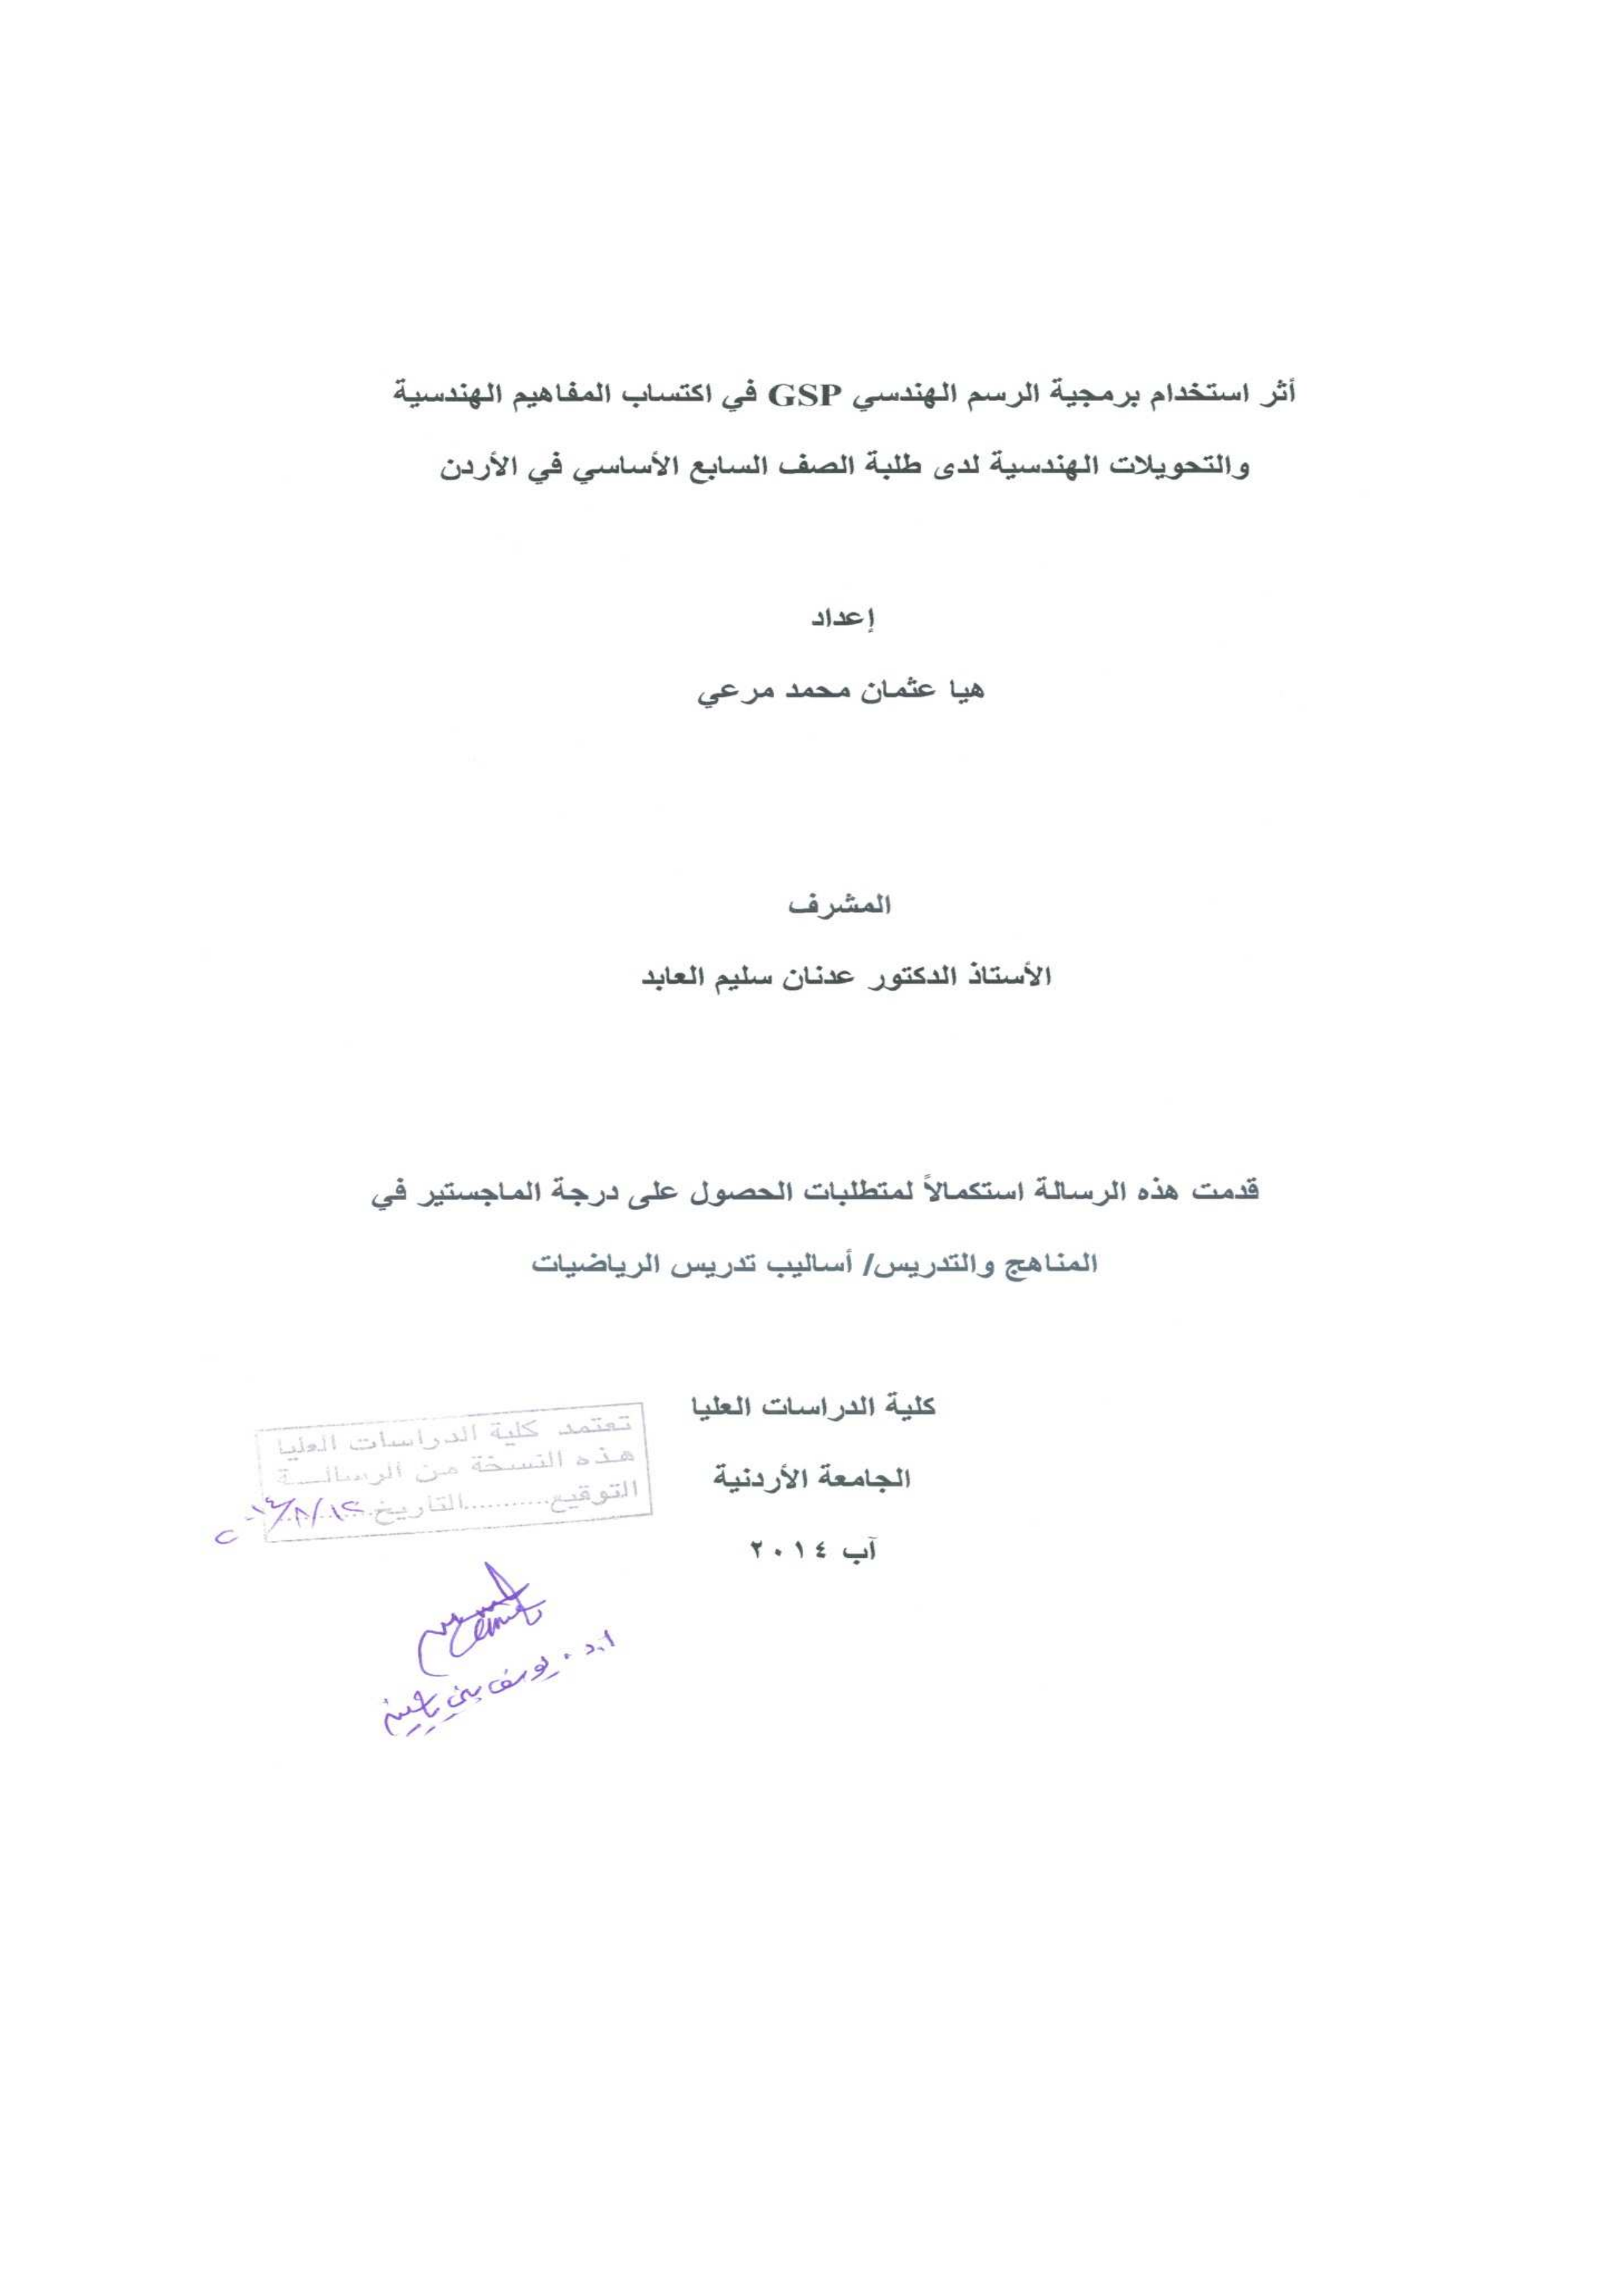 أثر استخدام برمجية الرسم الهندسي GSP في اكتساب المفاهيم الهندسية
والتحويلات الهندسية لدى طلبة الصف السابع الأساسي في الأردن
إعداد
هيا عثمان محمد مرعي
المشرف
الأستاذ الدكتور عدنان سليم العابد
قدمت هذه الرسالة استكمالاً لمتطلبات الحصول على درجة الماجستير في
المناهج والتدريس/ أساليب تدريس الرياضيات
كلية الدراسات العليا
الجامعة الأردنية
آب ٢٠١٤
تعتمد كلية الدراسات العليا
هذه النسخة من الرسالـــة
التوقيع...........التاريخ
أ.د. يوسف بني ياسين